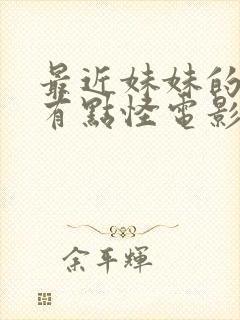 最近妹妹的
有點怪電影
余平輝